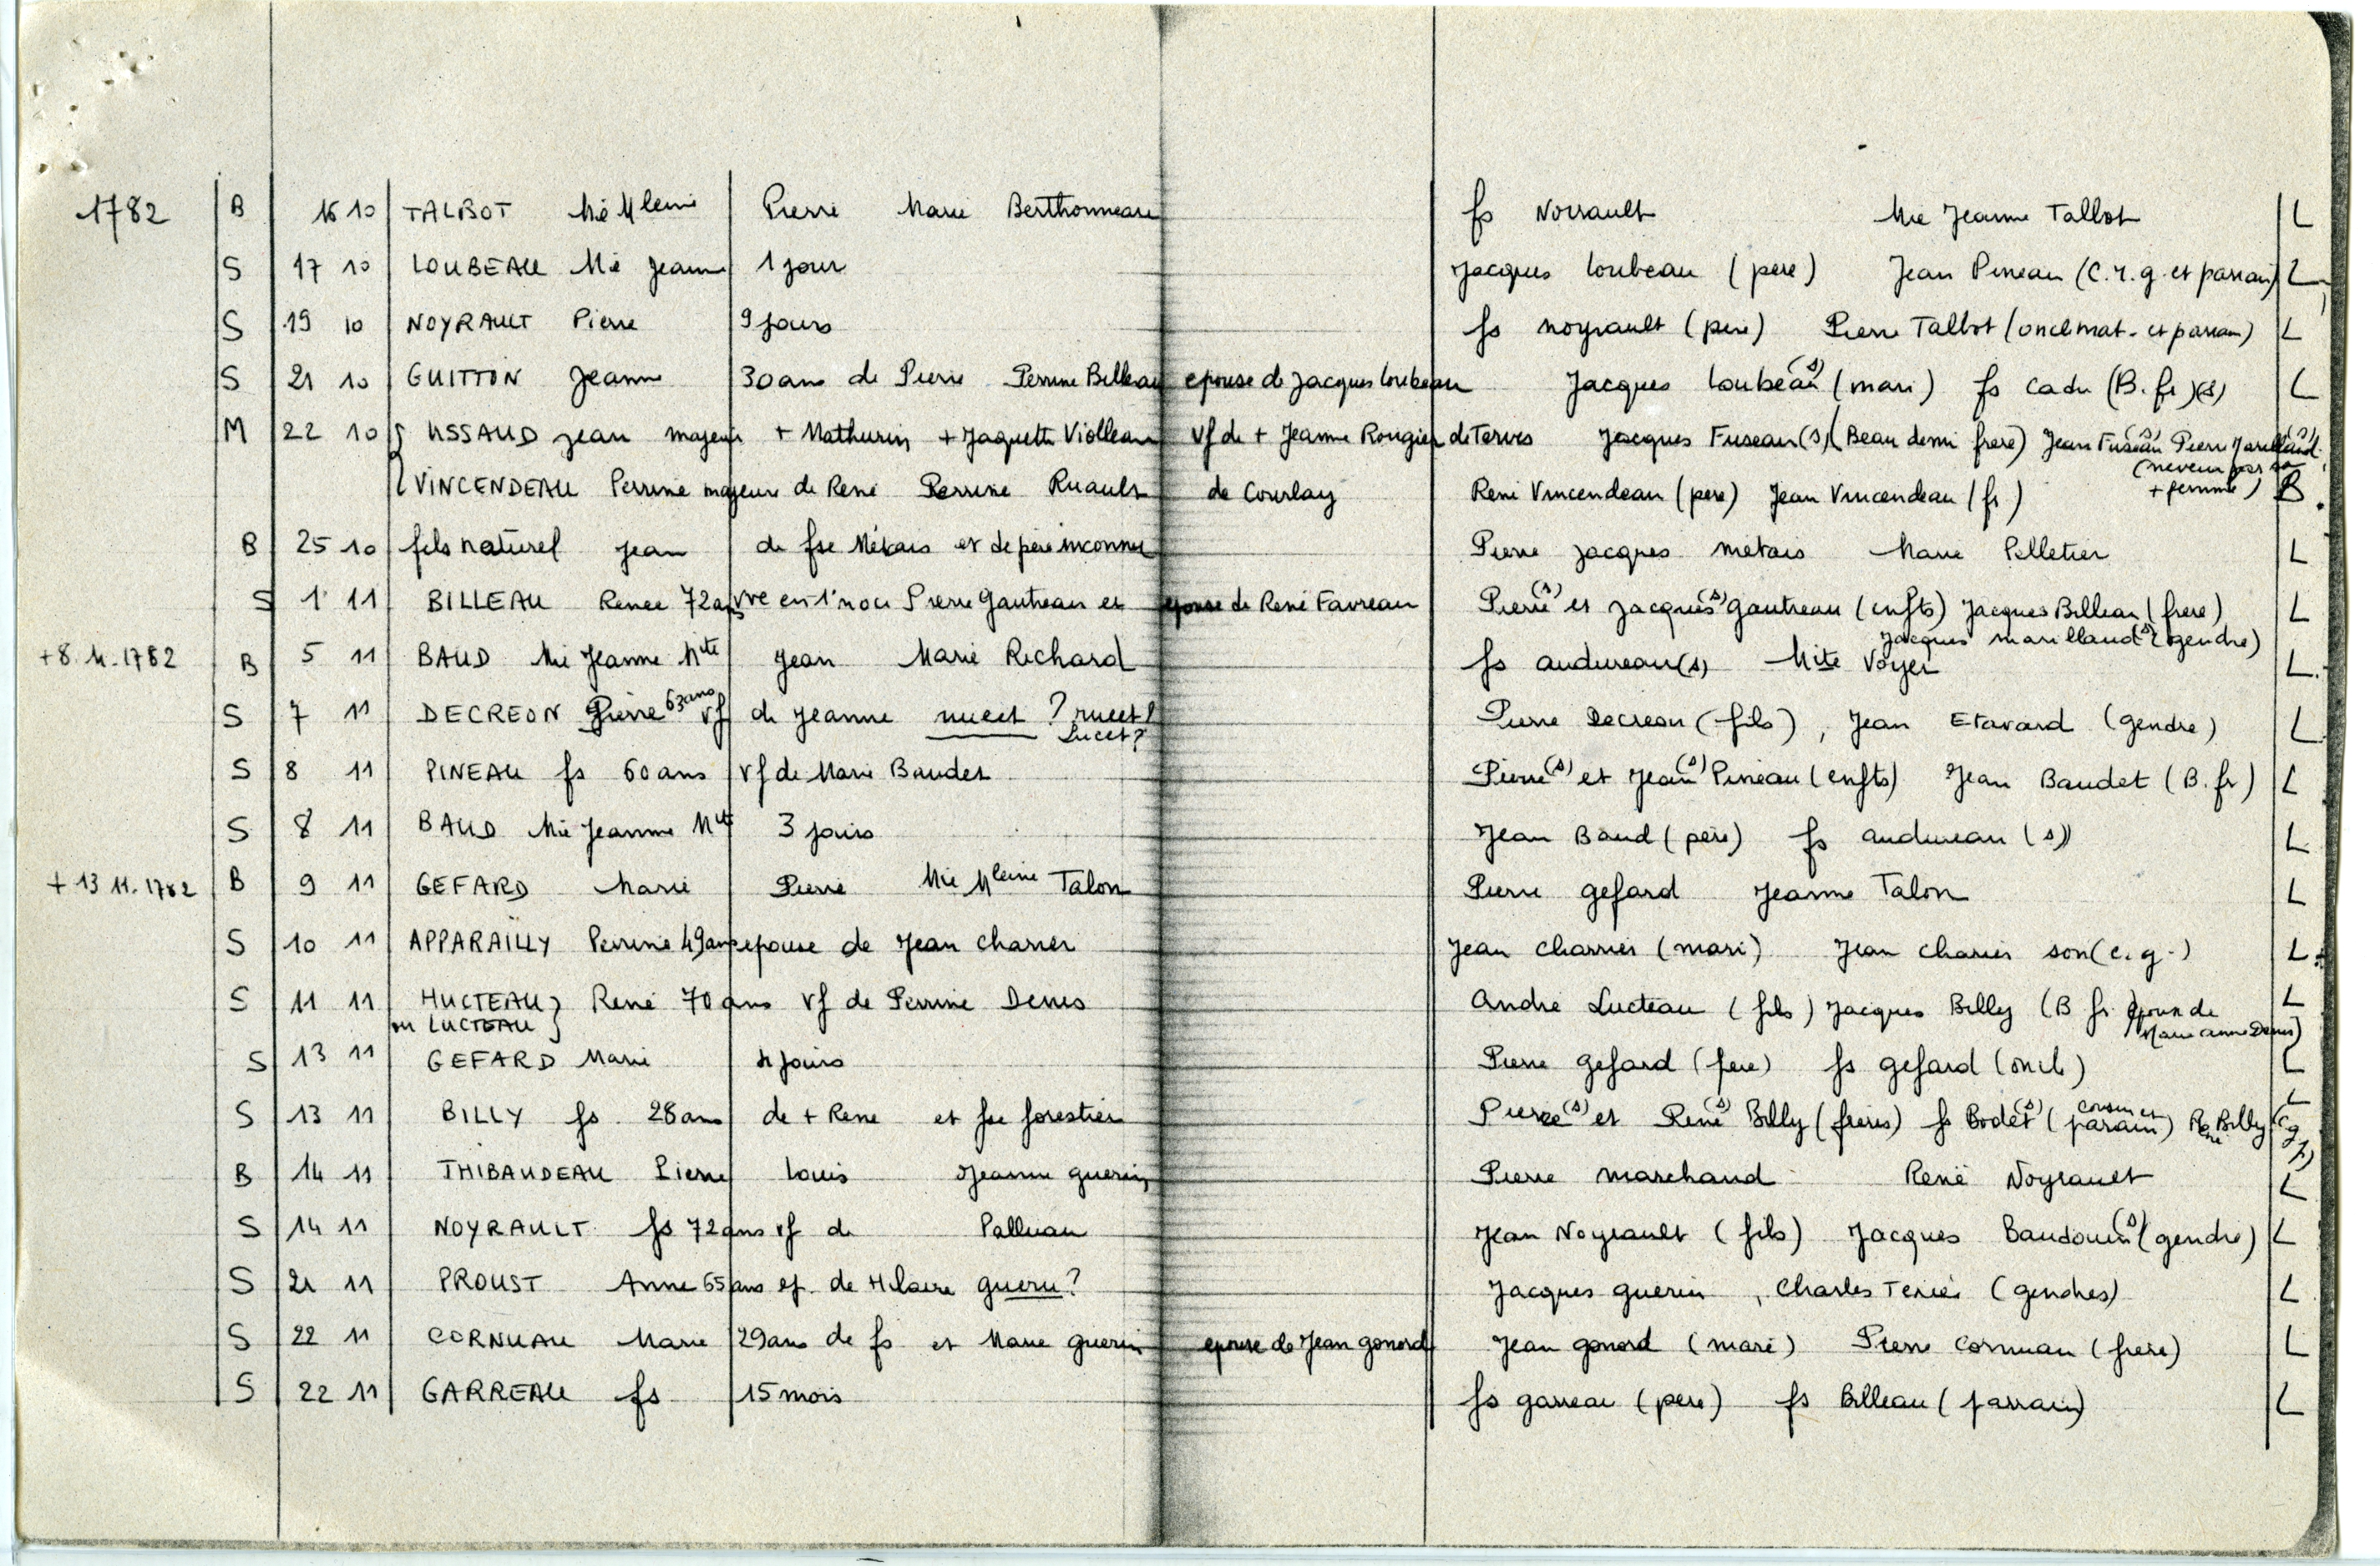 1782 B 16 10 TALBOT Mie Mleine Pierre Marie Berthonneau fs Noirault Mie Jeanne Tallot L
S 17 10 LOUBEAU Mie Jeanne 1 jour Jacques loubeau (père) Jean Pineau (C.r.g. et parrain) L
S 19 10 NOYRAULT Pierre 9 jours fs noyrault (père) Pierre Talbot (oncl mat. et parrain) L
S 21 10 GUITTON Jeanne 30 ans de Pierre Perrine Billeau epouse de Jacques loubeau Jacques loubeau (s) (mari) fs cadu (B. fr) (s) L
M 22 10 { USSAUD jean majeur + Mathurin + Jaquette Violleau Vf de + Jeanne Rougier de Terves Jacques Fuseau (s) (Beau demi frere) Jean Fuseau (s) Pierre (s)
(neveu par sa
{ VINCENDEAU Perrine majeure de René Perrine Ruault de Courlay René Vincendeau (père) Jean Vincendeau (fr) + femme) B
B 25 10 fils naturel jean de fse Métais et de père inconnu Pierre jacques metais Marie Pelletier L
S 1 11 BILLEAU Renee 72 ans vve en 1° noce Pierre Gautreau et epouse de René Favreau Pierre (s) et Jacques (s) Gautreau (enfts) Jacques Billeau (frere) L
Jacques marillaud (s) (gendre)
+8.11.1782 B 5 11 BAUD Mie Jeanne Mte Jean Marie Richard fs audureau (s) Mite Voyer L
S 7 11 DECREON Pierre 63 ans vf de Jeanne nueet ? rucet ? Pierre Decreon (fils), Jean Etavard (gendre) L
Lucet ?
S 8 11 PINEAU fs 60 ans vf de Marie Baudet Pierre (s) et Jean (s) Pineau (enfts) Jean Baudet (B. fr) L
S 8 11 BAUD Mie Jeanne Mte 3 jours Jean Baud (père) fs audureau (s) L
+ 13 11.1782 B 9 11 GEFARD Marie Pierre Mie Mleine Talon Pierre gefard Jeanne Talon L
S 10 11 APPARAILLY Perrine 49 ans epouse de Jean Charrier Jean Charrier (mari) Jean Charier son (c. g.) L
S 11 11 HUCTEAU } René 70 ans vf de Perrine Denis André Lucteau (fils) Jacques Billy (B fr. époux de L
ou LUCTEAU } Marie anne Denis)
S 13 11 GEFARD Marie 4 jours Pierre gefard (pere) fs gefard (oncle) L
S 13 11 BILLY fs 28 ans de + René et fse forestier Pierre (s) et René (s) Billy (frères) fs Bodet (s) (cousin et parain) René Billy (c g) L
B 14 11 THIBAUDEAU Pierre louis Jeanne guerin Pierre marchand René Noyrault L
S 14 11 NOYRAULT fs 72 ans vf de Palluau Jean Noyrault (fils) Jacques Baudouin (s) (gendre) L
S 21 11 PROUST Anne 65 ans ep. de Hilaire gueru ? Jacques guerin, Charles Texier (gendres) L
S 22 11 CORNUAU Marie 29 ans de fs et Marie guerin epouse de Jean gonord Jean gonord (mari) Pierre Cornuau (frere) L
S 22 11 GARREAU fs 15 mois fs garreau (père) fs Billeau (parrain) L